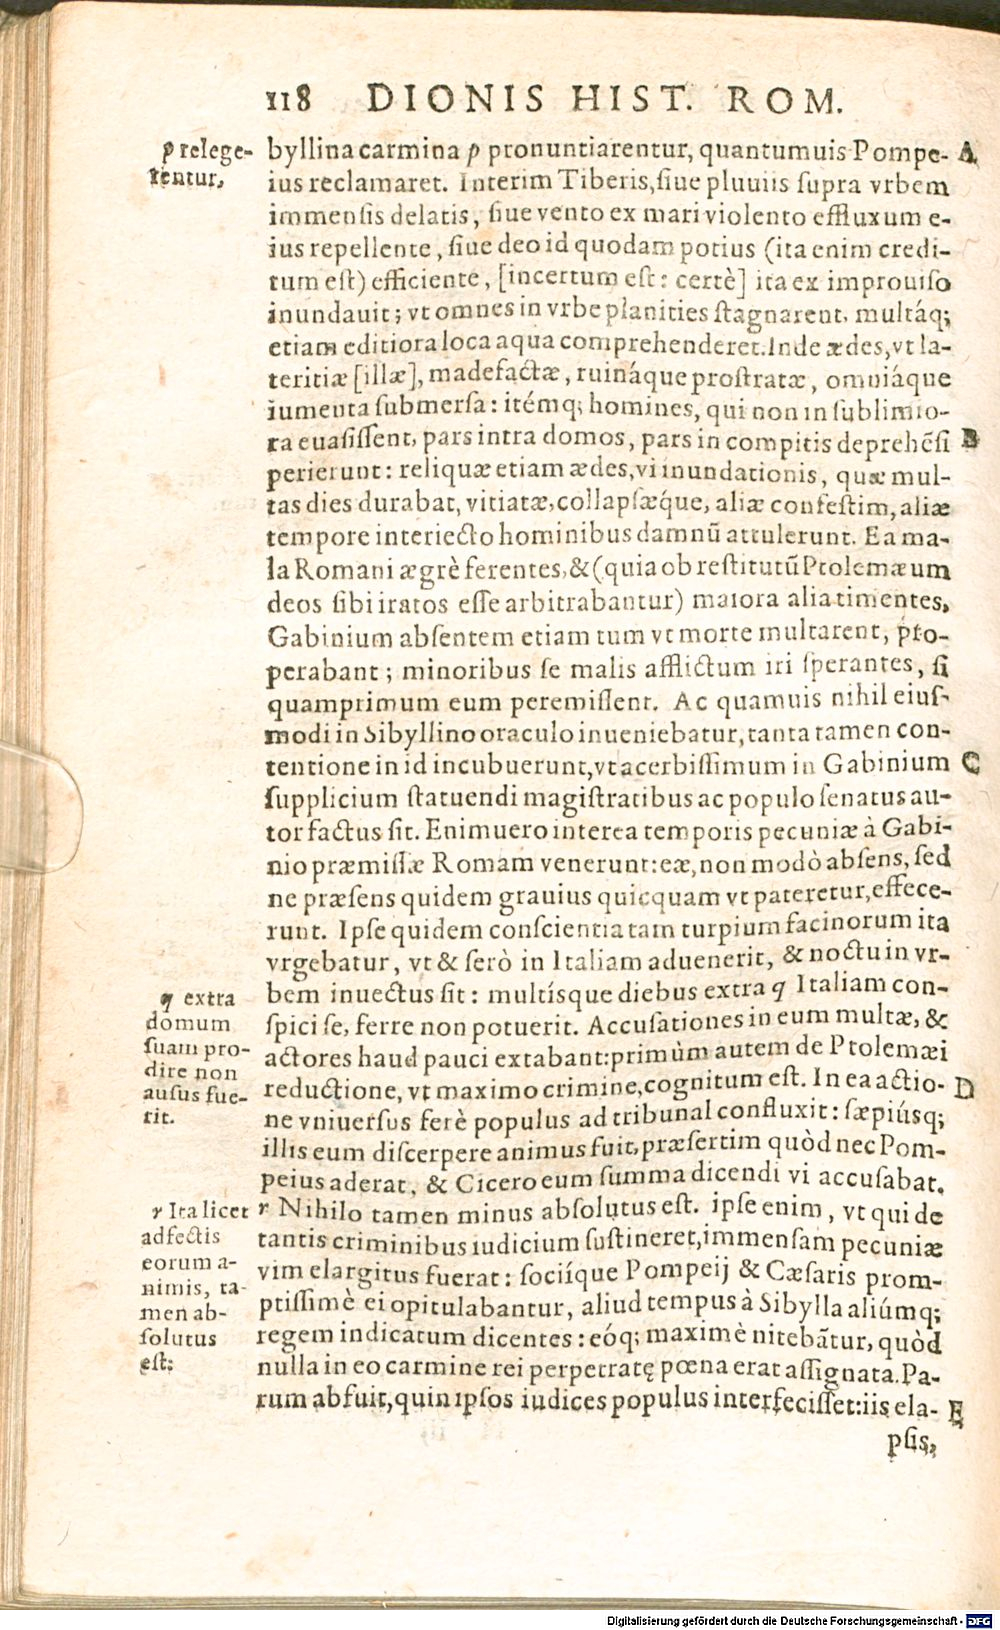 118 DIONIS HIST. ROM.
p relege-
rentur.
byllina carmina p pronuntiarentur, quantumuis Pompe- A
ius reclamaret. Interim Tiberis, ſiue pluuiis ſupra vrbem
immenſis delatis, ſiue vento ex mari violento effluxum e-
ius repellente, ſiue deo id quodam potius (ita enim credi-
tum eſt) efficiente, [incertum eſt: certè] ita ex improuiſo
inundauit; vt omnes in vrbe planities ſtagnarent, multáq;
etiam editiora loca aqua comprehenderet. Inde ædes, vt la-
teritiæ [illæ], madefactæ, ruináque proſtratæ, omniáque
iumenta ſubmerſa: itémq; homines, qui non in ſublimio-
ra euaſiſſent, pars intra domos, pars in compitis deprehẽſi B
perierunt: reliquæ etiam ædes, vi inundationis, quæ mul-
tas dies durabat, vitiatæ, collapſæq́ue, aliæ confeſtim, aliæ
tempore interiecto hominibus damnũ attulerunt. Ea ma-
la Romani ægrè ferentes, & (quia ob reſtitutũ Ptolemæum
deos ſibi iratos eſſe arbitrabantur) maiora alia timentes,
Gabinium abſentem etiam tum vt morte multarent, pro-
perabant; minoribus ſe malis afflictum iri ſperantes, ſi
quamprimum eum peremiſſent. Ac quamuis nihil eiuſ-
modi in Sibyllino oraculo inueniebatur, tanta tamen con-
tentione in id incubuerunt, vt acerbiſſimum in Gabinium C
ſupplicium ſtatuendi magiſtratibus ac populo ſenatus au-
tor factus ſit. Enimuero interea temporis pecuniæ à Gabi-
nio præmiſſæ Romam venerunt: eæ, non modò abſens, ſed
ne præſens quidem grauius quicquam vt pateretur, effece-
runt. Ipſe quidem conſcientia tam turpium facinorum ita
vrgebatur, vt & ſerò in Italiam aduenerit, & noctu in vr-
bem inuectus ſit: multíſque diebus extra q Italiam con-
q extra
domum
ſuam pro-
dire non
auſus fue-
rit.
ſpici ſe, ferre non potuerit. Accuſationes in eum multæ, &
actores haud pauci extabant: primùm autem de Ptolemæi
reductione, vt maximo crimine, cognitum eſt. In ea actio- D
ne vniuerſus ferè populus ad tribunal confluxit: ſæpiúſq;
illis eum diſcerpere animus fuit, præſertim quòd nec Pom-
peius aderat, & Cicero eum ſumma dicendi vi accuſabat.
r Ita licet
adfectis
eorum a-
nimis, ta-
men ab-
ſolutus
eſt:
r Nihilo tamen minus abſolutus eſt. ipſe enim, vt qui de
tantis criminibus iudicium ſuſtineret, immenſam pecuniæ
vim elargitus fuerat: ſociíque Pompeij & Cæſaris prom-
ptiſſimè ei opitulabantur, aliud tempus à Sibylla aliúmq;
regem indicatum dicentes: eóq; maximè nitebãtur, quòd
nulla in eo carmine rei perpetratę pœna erat aſſignata. Pa-
rum abfuit, quin ipſos iudices populus interfeciſſet: iis ela- E
pſis,
Digitalisierung gefördert durch die Deutsche Forschungsgemeinschaft - DFG